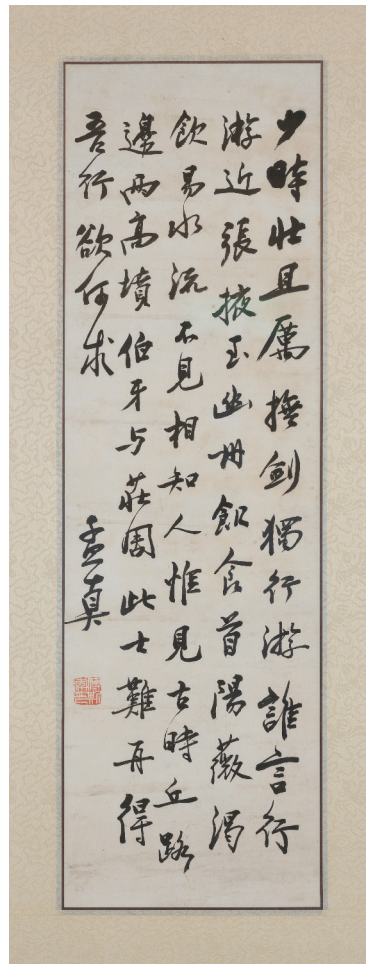 少時壯且厲撫劍獨行游誰言行
游近張掖至幽州飢食首陽薇渴
飲易水流不見相知人惟見古時丘路
邊兩高墳伯牙与莊周此士難再得
吾行欲何求
孟真